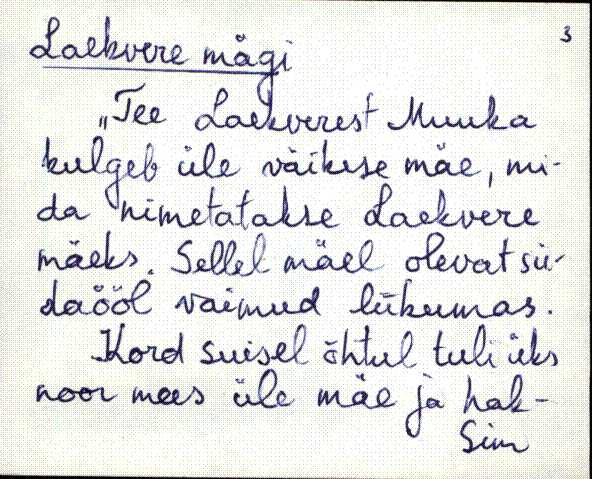 3
Laekvere mägi
„Tee Laekverest Muuka
kulgeb üle väikese mäe, mi-
da nimetatakse Laekvere
mäeks. Sellel mäel olevat sü-
daööl vaimud liikumas.
Kord suisel õhtul tuli üks
noor mees üle mäe ja hak-
Sim